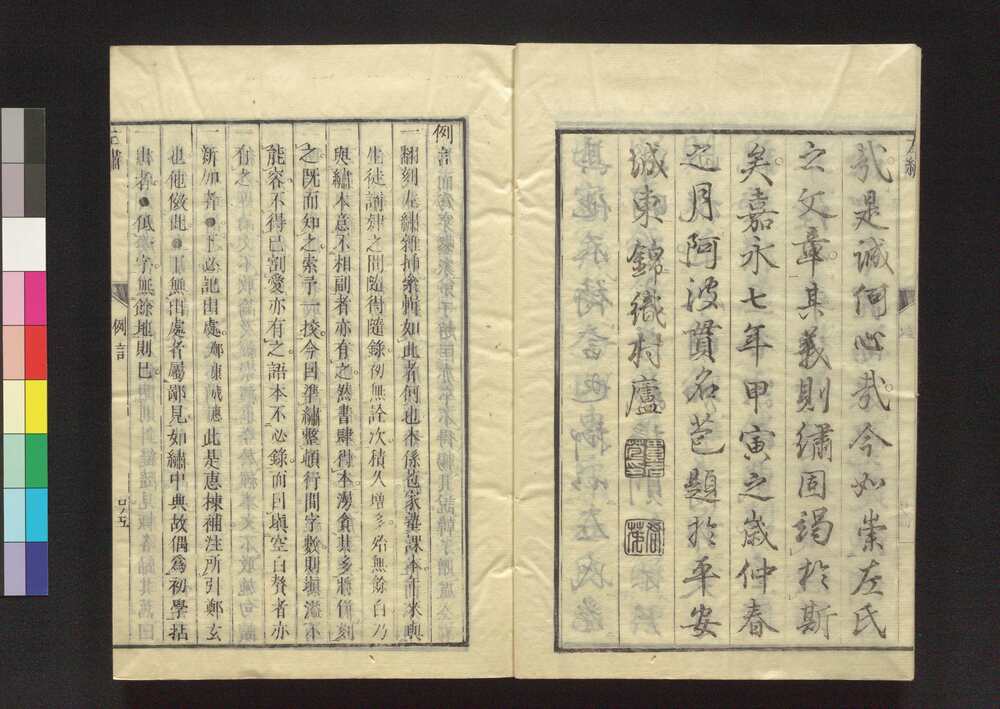 哉是誠何心哉今如崇左氏
之文章其義則繡固竭於斯
矣嘉永七年甲寅之歲仲春
之月阿波貫名苞題於平安
城東錦織村廬
例言
一翻刻左繡雜插衆輯如此者何也本係苞家塾課本年來與
生徒講肄之間隨得隨錄例無詮次積久增多殆無餘白乃
與繡本意不相副者亦有之然書肆得本漫貪其多將併刻
之既而知之索予一挍今因準繡整頓行間字數則塡溢不
能容不得已割愛亦有之語本不必錄而曰塡空白贅者亦
有之
一新加者●上必記出處此是惠棟補注所引鄭玄
也他倣此●上無出處者屬鄙見如繡中典故偶爲初學拈
出者●低字無餘地則已
例言